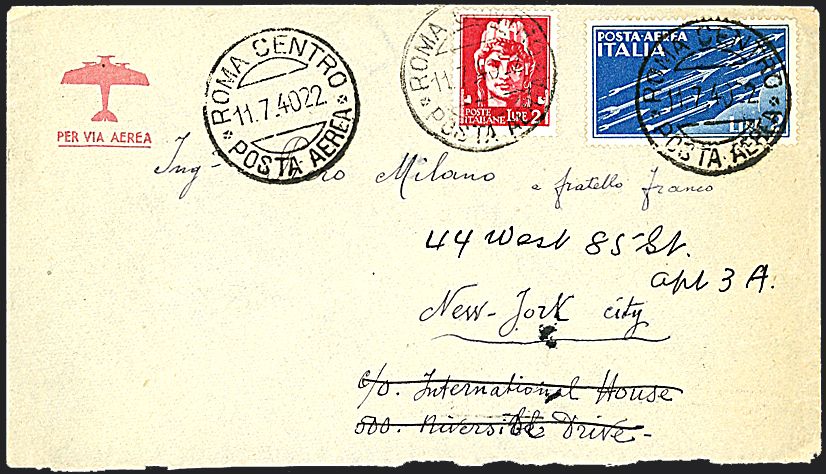 PER VIA AEREA
ROMA CENTRO
11.7.40 22
* POSTA AEREA *
ROMA CENTRO
11.7.40
* POSTA AEREA
POSTE ITALIANE LIRE 2
POSTA-AEREA
ITALIA
ROMA CENTRO
11.7.40 22
* POSTA AEREA
Ing. Milano e fratello Franco
44 West 85 St.
apt 3 A.
New-York city
c/o. International House
500. Riverside Drive-